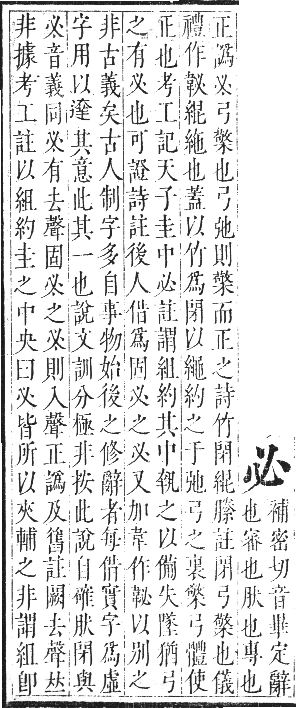 必
補密切音畢定辭
也審也肰也專也
正譌必弓檠也弓弛則檠而正之詩竹閉緄縢註閉弓檠也儀
禮作䪐緄繩也蓋以竹爲閉以繩約之于弛弓之裏檠弓體使
正也考工記天子圭中必註謂組約其中執之以備失墜猶弓
之有必也可證詩註後人借爲固必之必又加韋作䪐以別之
非古義矣古人制字多自事物始後之修辭者每借實字爲虛
字用以達其意此其一也說文訓分極非按此說自確肰閉與
必音義同必有去聲固必之必則入聲正譌及舊註闕去聲𠀤
非據考工註以組約圭之中央曰必皆所以夾輔之非謂組卽